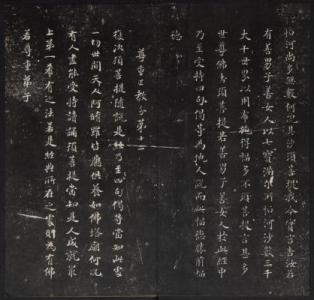 恒河尚多無數何況其沙須菩提我今實言告汝若
有善男子善女人以七寶滿爾所恒河沙數三千
大千世界以用布施得福多不須菩提言甚多
世尊佛告須菩提若善男子善女人於此經中
乃至受持四句偈等為他人說而此福德勝前福
德
尊重正教分第十二
復次須菩提隨說是經乃至四句偈等當知此處
一切世間天人阿脩羅皆應供養如佛塔廟何況
有人盡能受持讀誦須菩提當知是人成就最
上第一希有之法若是經典所在之處則為有佛
若尊重弟子